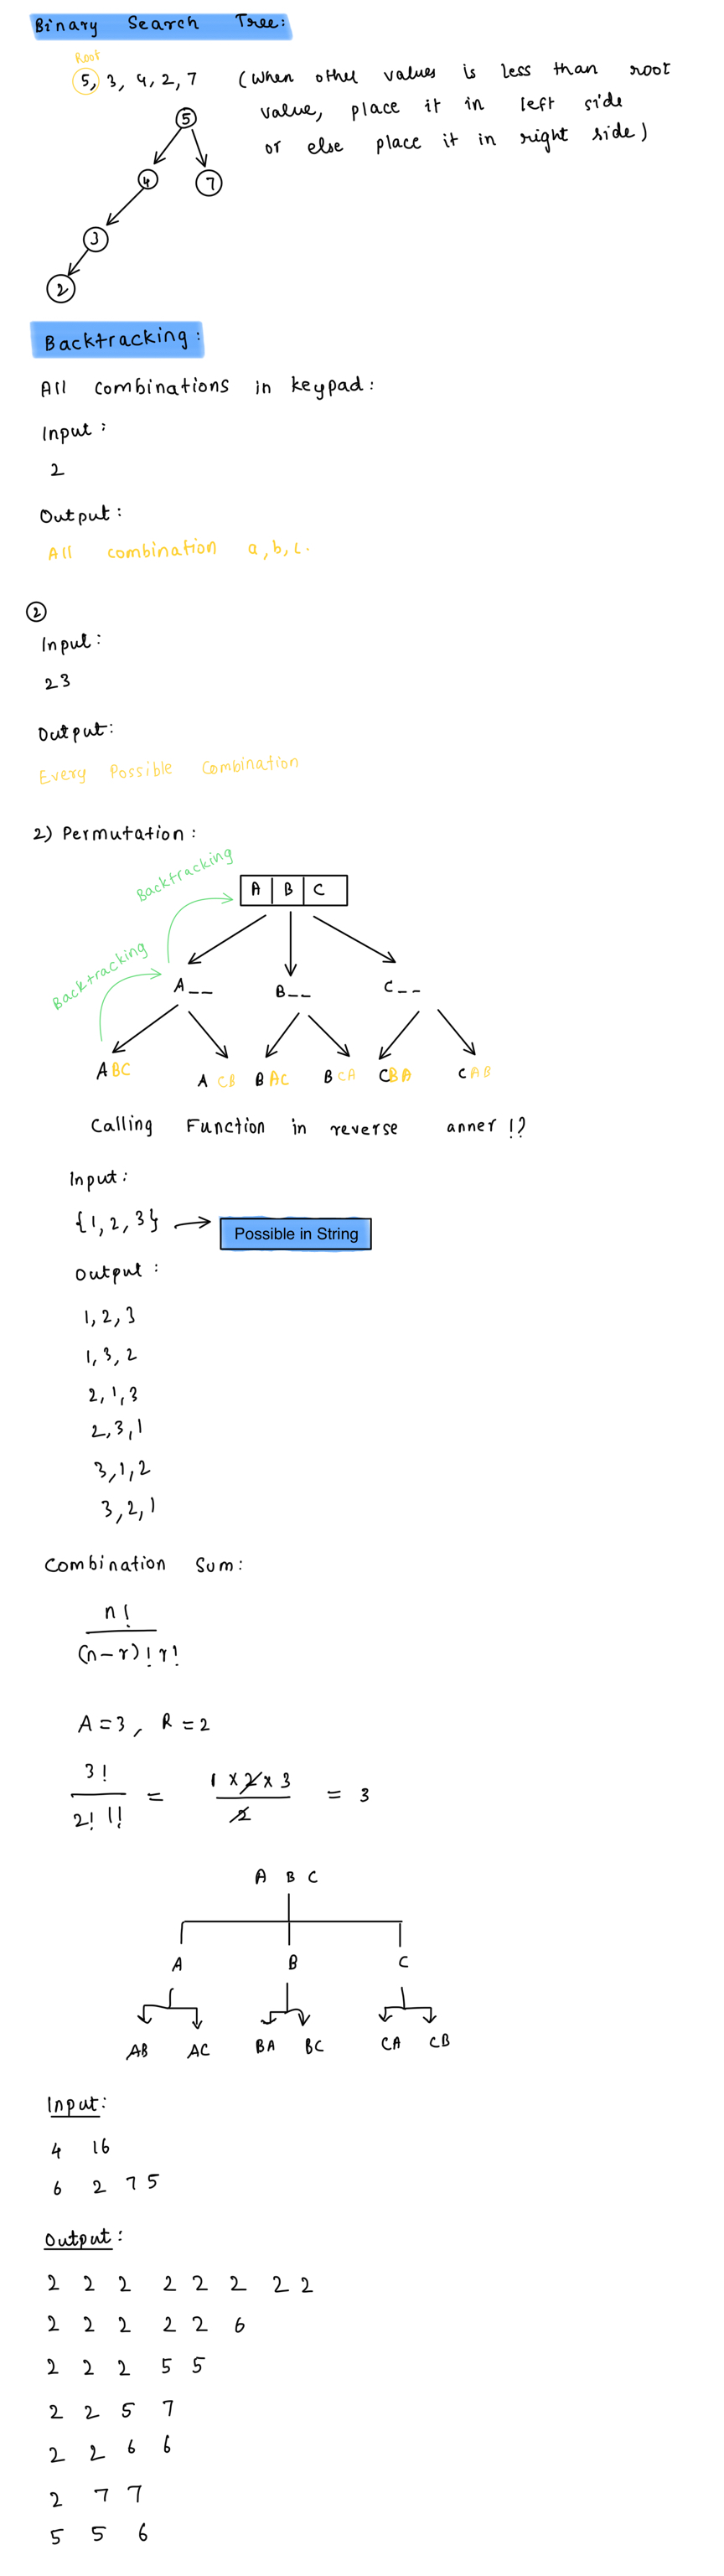 Binary Search Tree:
Root
5, 3, 4, 2, 7 (When other values is less than root
value, place it in left side
or else place it in right side)
5
4 7
3
2
Backtracking:
All combinations in keypad:
Input:
2
Output:
All combination a, b, c.
2
Input:
23
Output:
Every Possible Combination
2) Permutation:
Backtracking
A B C
Backtracking
A__ B__ C__
ABC A CB B AC B CA CBA C AB
Calling Function in reverse anner !?
Input:
{1, 2, 3} → Possible in String
Output:
1, 2, 3
1, 3, 2
2, 1, 3
2, 3, 1
3, 1, 2
3, 2, 1
Combination Sum:
n!
(n-r)! r!
A = 3, R = 2
3! = 1 x 2 x 3 = 3
2! 1! 2
A B C
A B C
AB AC BA BC CA CB
Input:
4 16
6 2 7 5
Output:
2 2 2 2 2 2 2 2
2 2 2 2 2 6
2 2 2 5 5
2 2 5 7
2 2 6 6
2 7 7
5 5 6